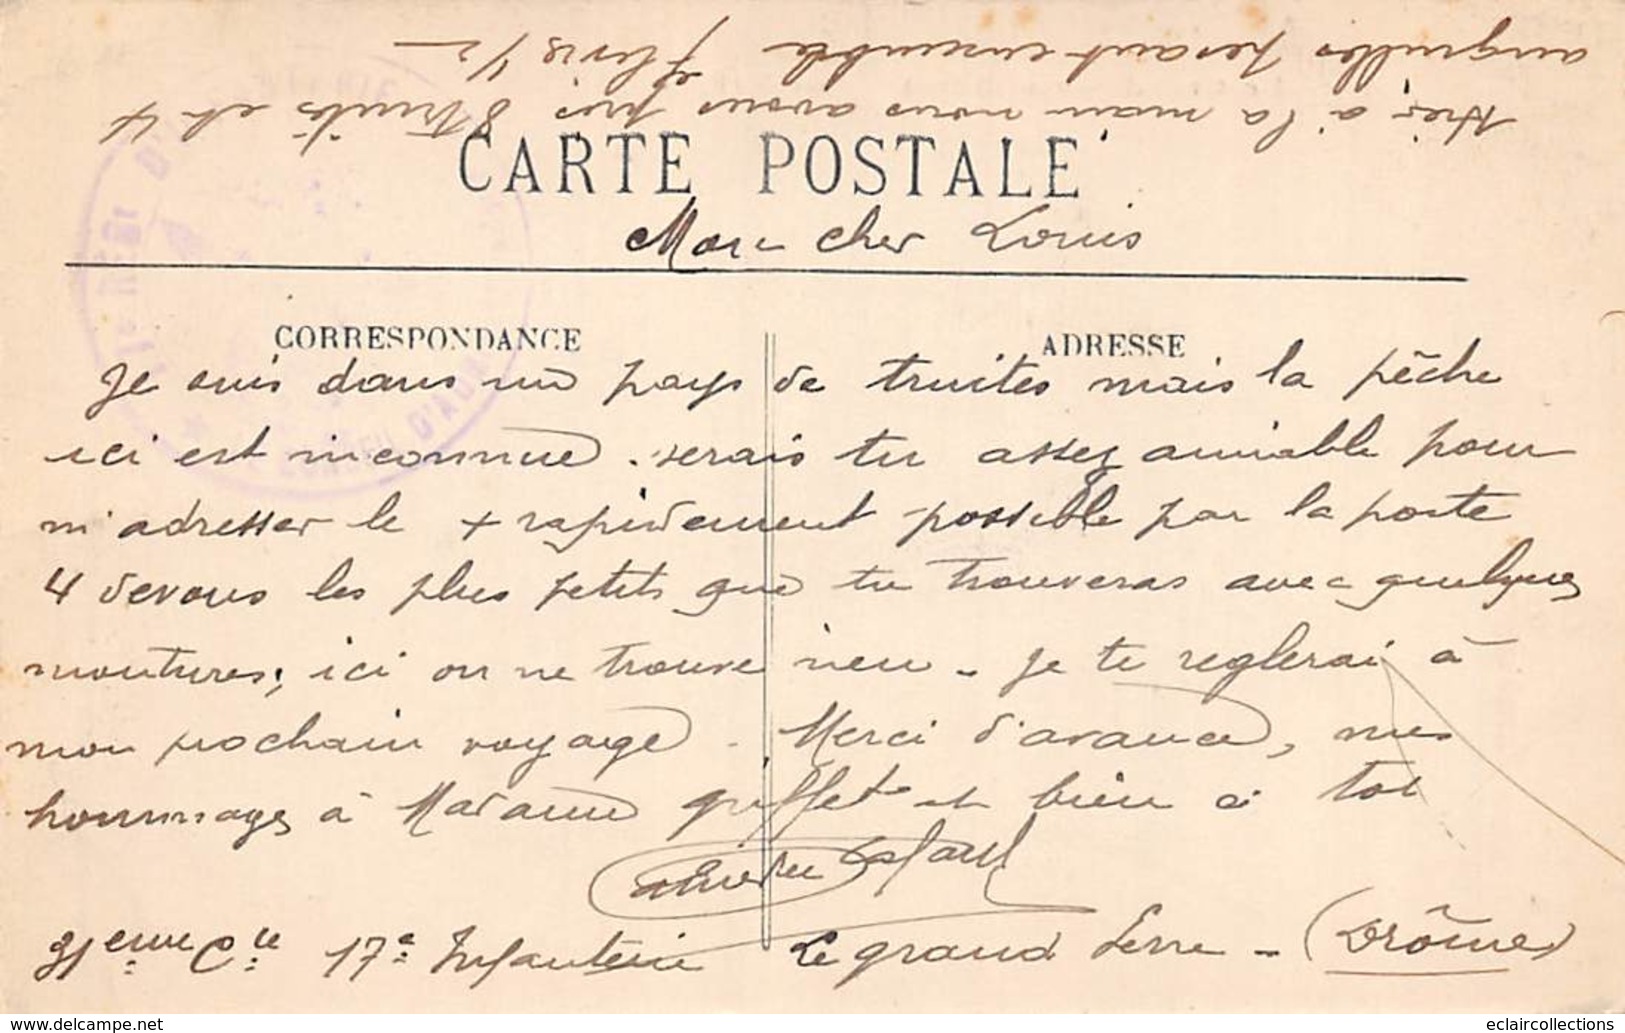 Hier à la main nous avons pris 8 truites et 4
anguilles pesant ensemble 7 livres 1/2
CARTE POSTALE
Mon cher Louis
CORRESPONDANCE
ADRESSE
Je suis dans un pays de truites mais la pêche
ici est inconnue. serais tu assez aimable pour
m'adresser le + rapidement possible par la poste
4 devons les plus petits que tu trouveras avec quelques
montures; ici on ne trouve rien - je te reglerai à
mon prochain voyage. Merci d'avance, mes
hommages à Madame Griffet et bien à toi
31eme Cie 17e Infanterie Le grand Serre - (Drôme)
eclaircollections